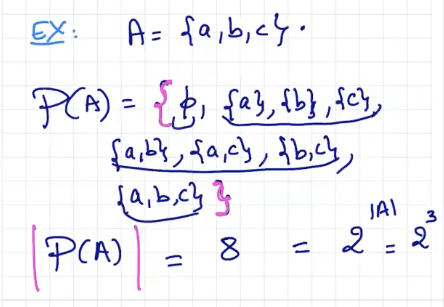 EX: A = {a,b,c}.
P(A) = {ϕ, {a}, {b}, {c},
{a,b}, {a,c}, {b,c},
{a,b,c}}
|P(A)| = 8 = 2^|A| = 2^3